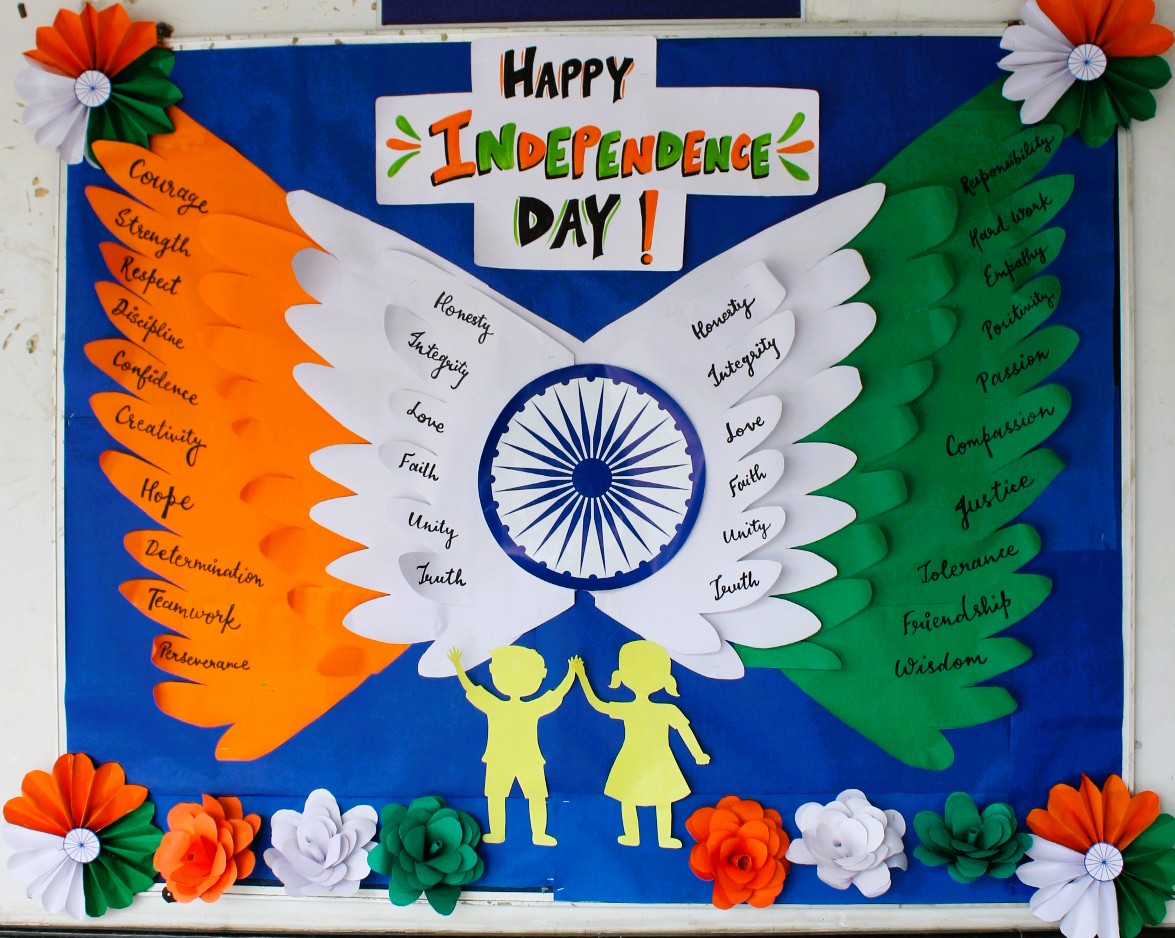 HAPPY
INDEPENDENCE
DAY!
Courage
Strength
Respect
Discipline
Confidence
Creativity
Hope
Determination
Teamwork
Perseverance
Honesty
Integrity
Love
Faith
Unity
Truth
Honesty
Integrity
Love
Faith
Unity
Truth
Responsibility
Hard Work
Empathy
Positivity
Passion
Compassion
Justice
Tolerance
Friendship
Wisdom